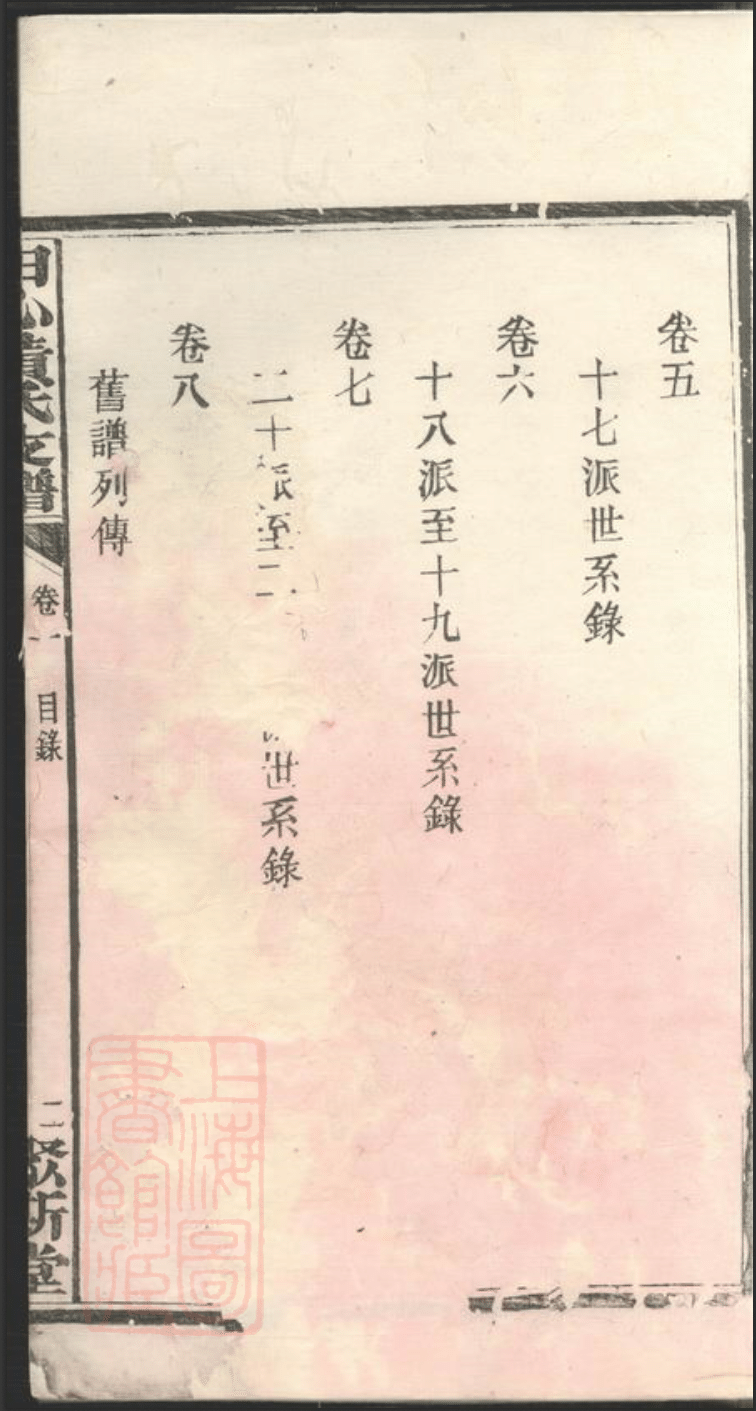 卷五
十七派世系錄
卷六
十八派至十九派世系錄
卷七
二十派至二
世系錄
卷八
舊譜列傳
氏支譜
卷一
目錄
二
堂
上海圖書館藏